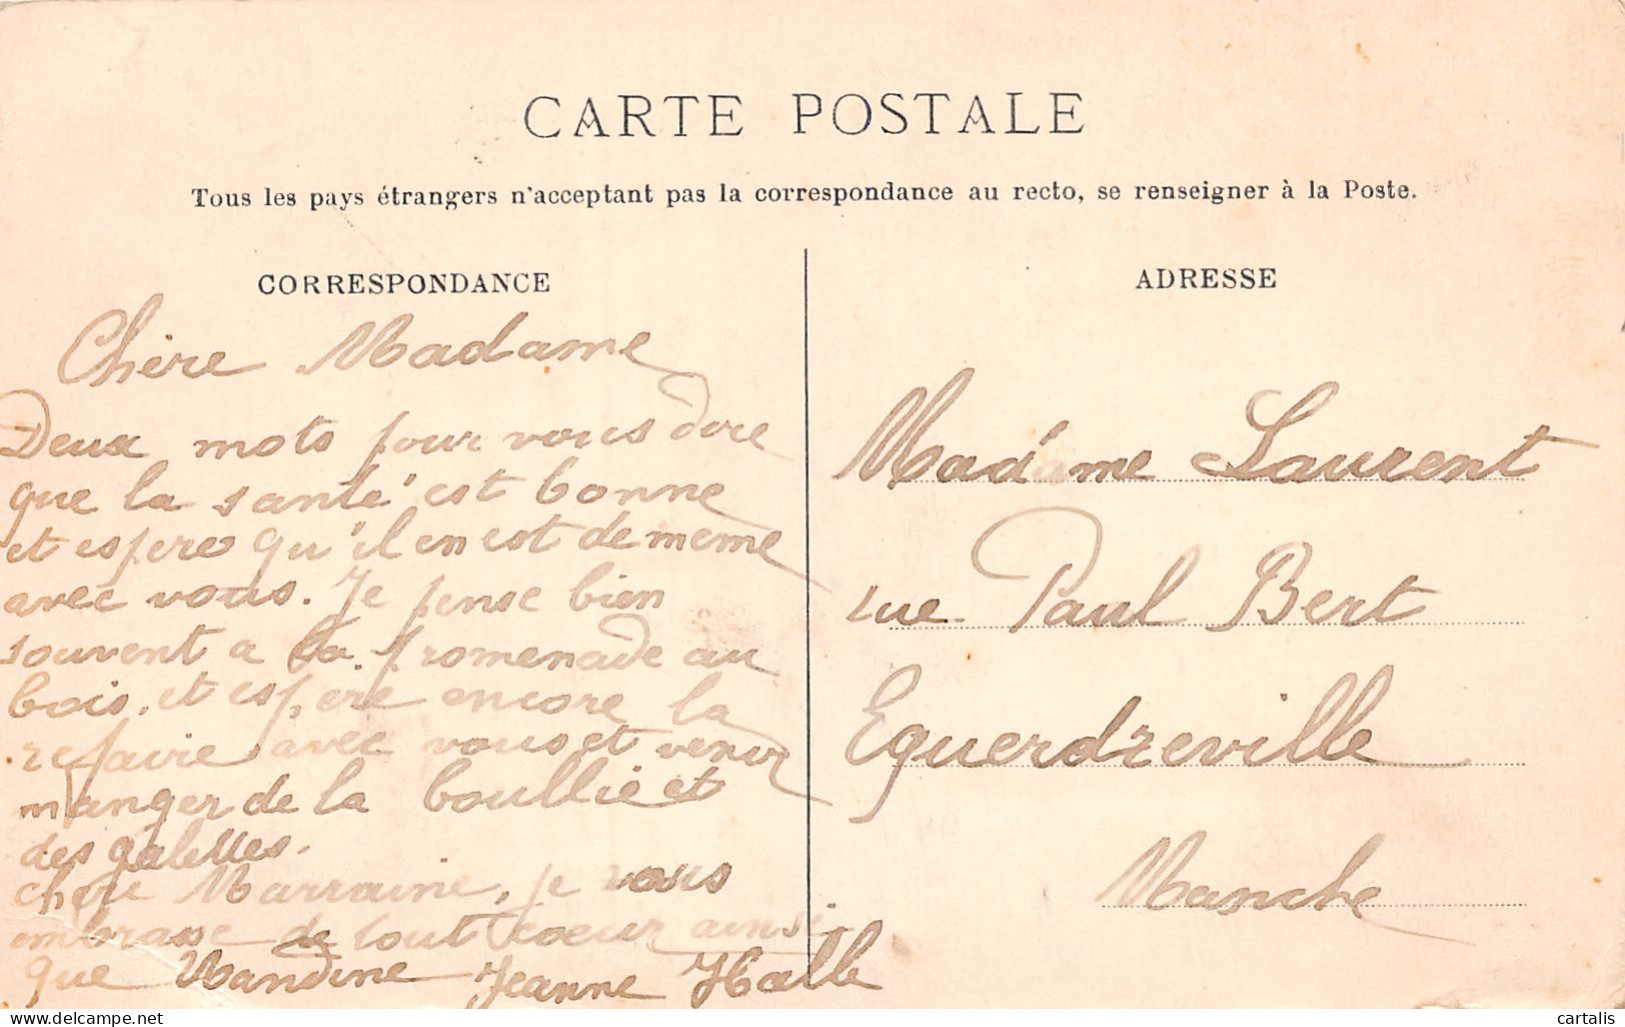 CARTE POSTALE
Tous les pays étrangers n'acceptant pas la correspondance au recto, se renseigner à la Poste.
CORRESPONDANCE
Chère Madame
Deux mots pour vous dire
que la santé est bonne
et espere qu'il en est de meme
avec vous. Je pense bien
souvent a la promenade au
bois, et espere encore la
refaire avec vous et venir
manger de la boullie et
des galettes.
chere Marraine, je vous
embrasse de tout coeur ainsi
que Jeanne Halle
ADRESSE
Madame Laurent
rue Paul Bert
Equerdreville
Manche
delcampe.net
cartalis